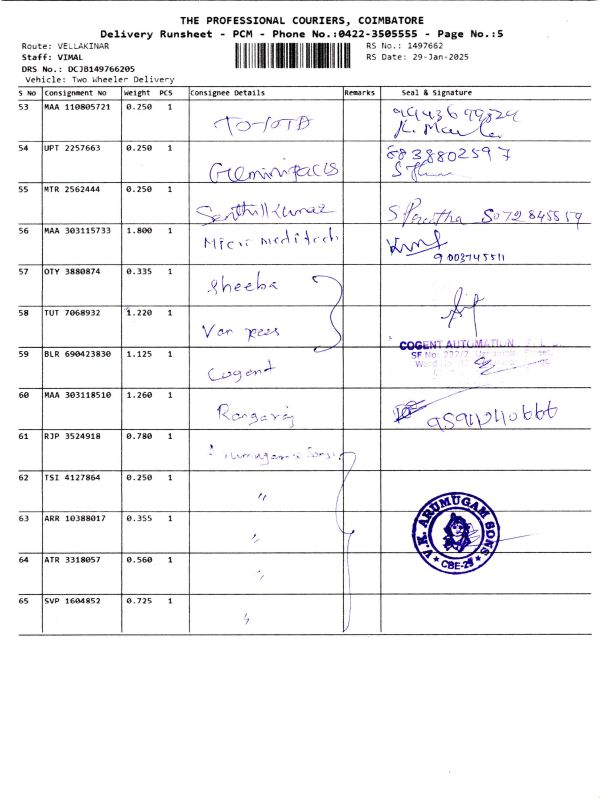 THE PROFESSIONAL COURIERS, COIMBATORE
Delivery Runsheet - PCM - Phone No.:0422-3505555 - Page No.:5
Route: VELLAKINAR RS No.: 1497662
Staff: VIMAL RS Date: 29-Jan-2025
DRS No.: DCJB149766205
Vehicle: Two Wheeler Delivery
S No Consignment No Weight PCS Consignee Details Remarks Seal & Signature
53 MAA 110805721 0.250 1
54 UPT 2257663 0.250 1 Geminipacks 8838802597
55 MTR 2562444 0.250 1 Senthil Kumar
56 MAA 303115733 1.800 1 Micro meditech 9003745511
57 OTY 3880874 0.335 1 Sheeba
58 TUT 7068932 1.220 1
59 BLR 690423830 1.125 1 Cogent COGENT AUTOMATION
SF No. 222/2
60 MAA 303118510 1.260 1 Rangaraj
61 RJP 3524918 0.780 1 Arumugam & Sons
62 TSI 4127864 0.250 1 "
63 ARR 10388017 0.355 1 "
64 ATR 3318057 0.560 1 "
65 SVP 1604852 0.725 1 "
V.K. ARUMUGAM SONS
CBE-29